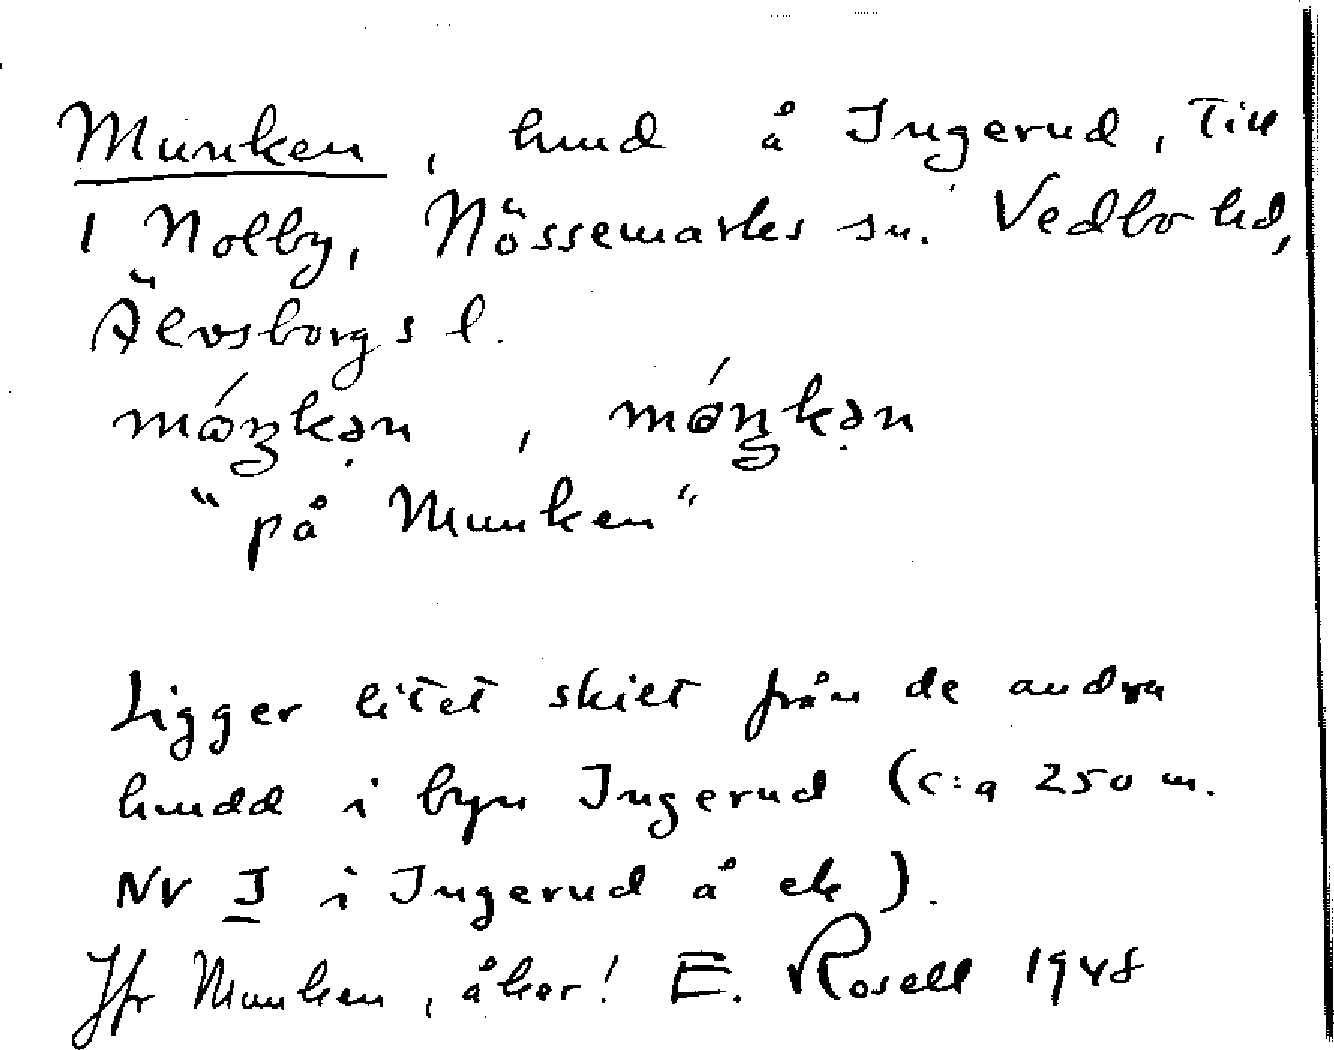 Munken, hmd å Ingerud, till
1 Nolby, Nössemarks sn. Vedbo hd,
Älvsborgs l.
"på Munken"
Ligger litet skilt från de andra
hmdd i byn Ingerud (c:a 250 m.
NV I i Ingerud å ek).
Jfr Munken, åker! E. Rosell 1948